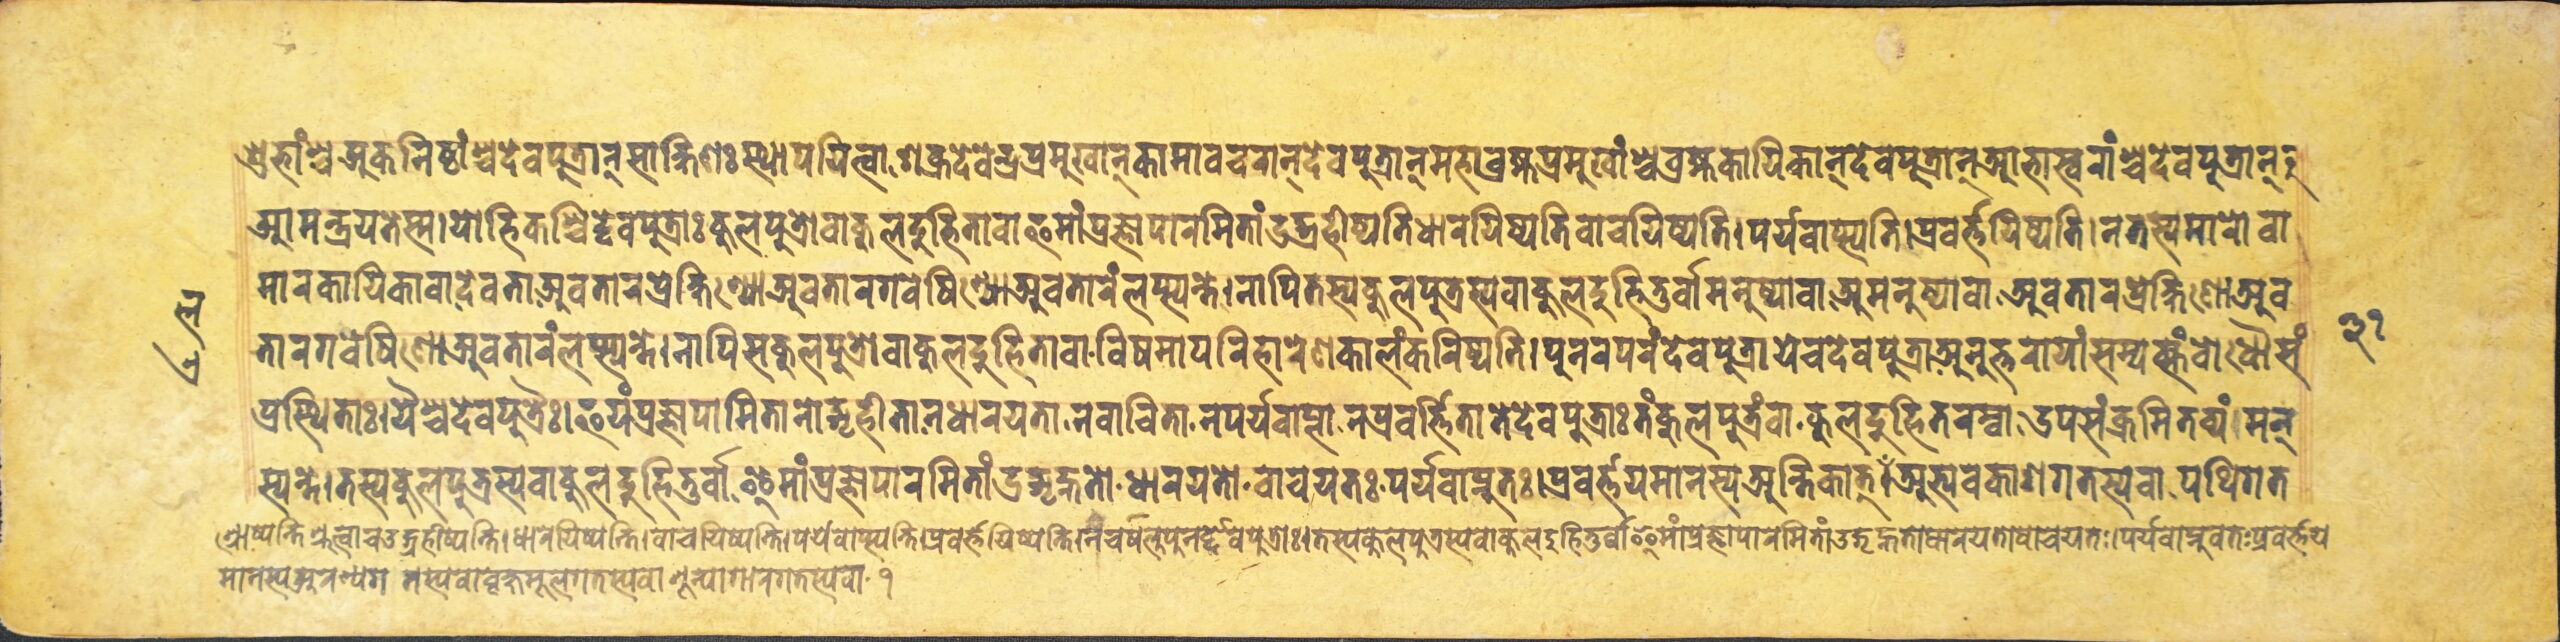 श्रुहांश्च अकनिष्ठांश्च देवपुत्रान् साक्षिणः स्थापयित्वा शक्रदेवेन्द्रप्रमुखान् कामावचरान् देवपुत्रान् महाब्रह्मप्रमुखांश्च ब्रह्मकायिकान् देवपुत्रान् आभास्वरांश्च देवपुत्रान्
आमन्त्रयते स्म। यो हि कश्चिद्देवपुत्राः कुलपुत्रो वा कुलदुहिता वा इमां प्रज्ञापारमितां उद्ग्रहीष्यति धारयिष्यति वाचयिष्यति। पर्यवाप्स्यति। प्रवर्त्तयिष्यति। न तस्य मारो वा
मारकायिका वा देवता अवतारप्रेक्षिण्यो अवतारगवेषिण्यो अवतारं लप्स्यन्ते। नापि तस्य कुलपुत्रस्य वा कुलदुहितुर्वा मनुष्या वा अमनुष्या वा अवतारप्रेक्षिणो अव
तारगवेषिणो अवतारं लप्स्यन्ते। नापि स कुलपुत्रो वा कुलदुहिता वा विषमापरिहारेण कालं करिष्यति। पुनरपरं देवपुत्रा ये च देवपुत्रा अनुत्तरायां सम्यक्संबोधौ सं
प्रस्थिताः। यैश्च देवपुत्रैः। इयं प्रज्ञापामिता नोद्गृहीता न धारयता न वाचिता न पर्यवाप्ता न प्रवर्त्तिता ते देवपुत्राः तं कुलपुत्रं वा कुलदुहितरम्वा उपसंक्रमितव्यं। मन्
स्यन्ते। तस्य कुलपुत्रस्य वा कुलदुहितुर्वा इमां प्रज्ञापारमितां उद्गृह्नतो धारयतो वाचयतः पर्यवाप्नुतः। प्रवर्त्तयमानस्य अन्तिकात्। अभ्यवकाशगतस्य वा पथिगत
श्रोष्यन्ति श्रुत्वा च उद्ग्रहीष्यन्ति। धारयिष्यन्ति। वाचयिष्यन्ति। पर्यवाप्स्यन्ति। प्रवर्त्तयिष्यन्ति। न च खलु पुनर्द्देवपुत्राः। तस्य कुलपुत्रस्य वा कुलदुहितुर्वा इमां प्रज्ञापारमितां उद्गृह्नतो धारयतो वाचयतः। पर्यवाप्नुवतः प्रवर्त्तय
मानस्य अरण्यगतस्य वा वृक्षमूलगतस्य वा शून्यागारगतस्य वा १
३१